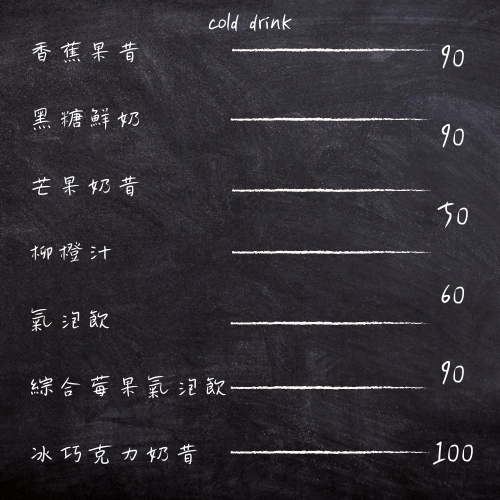 cold drink
香蕉果昔 90
黑糖鮮奶 90
芒果奶昔 50
柳橙汁 60
氣泡飲 90
綜合莓果氣泡飲
冰巧克力奶昔 100